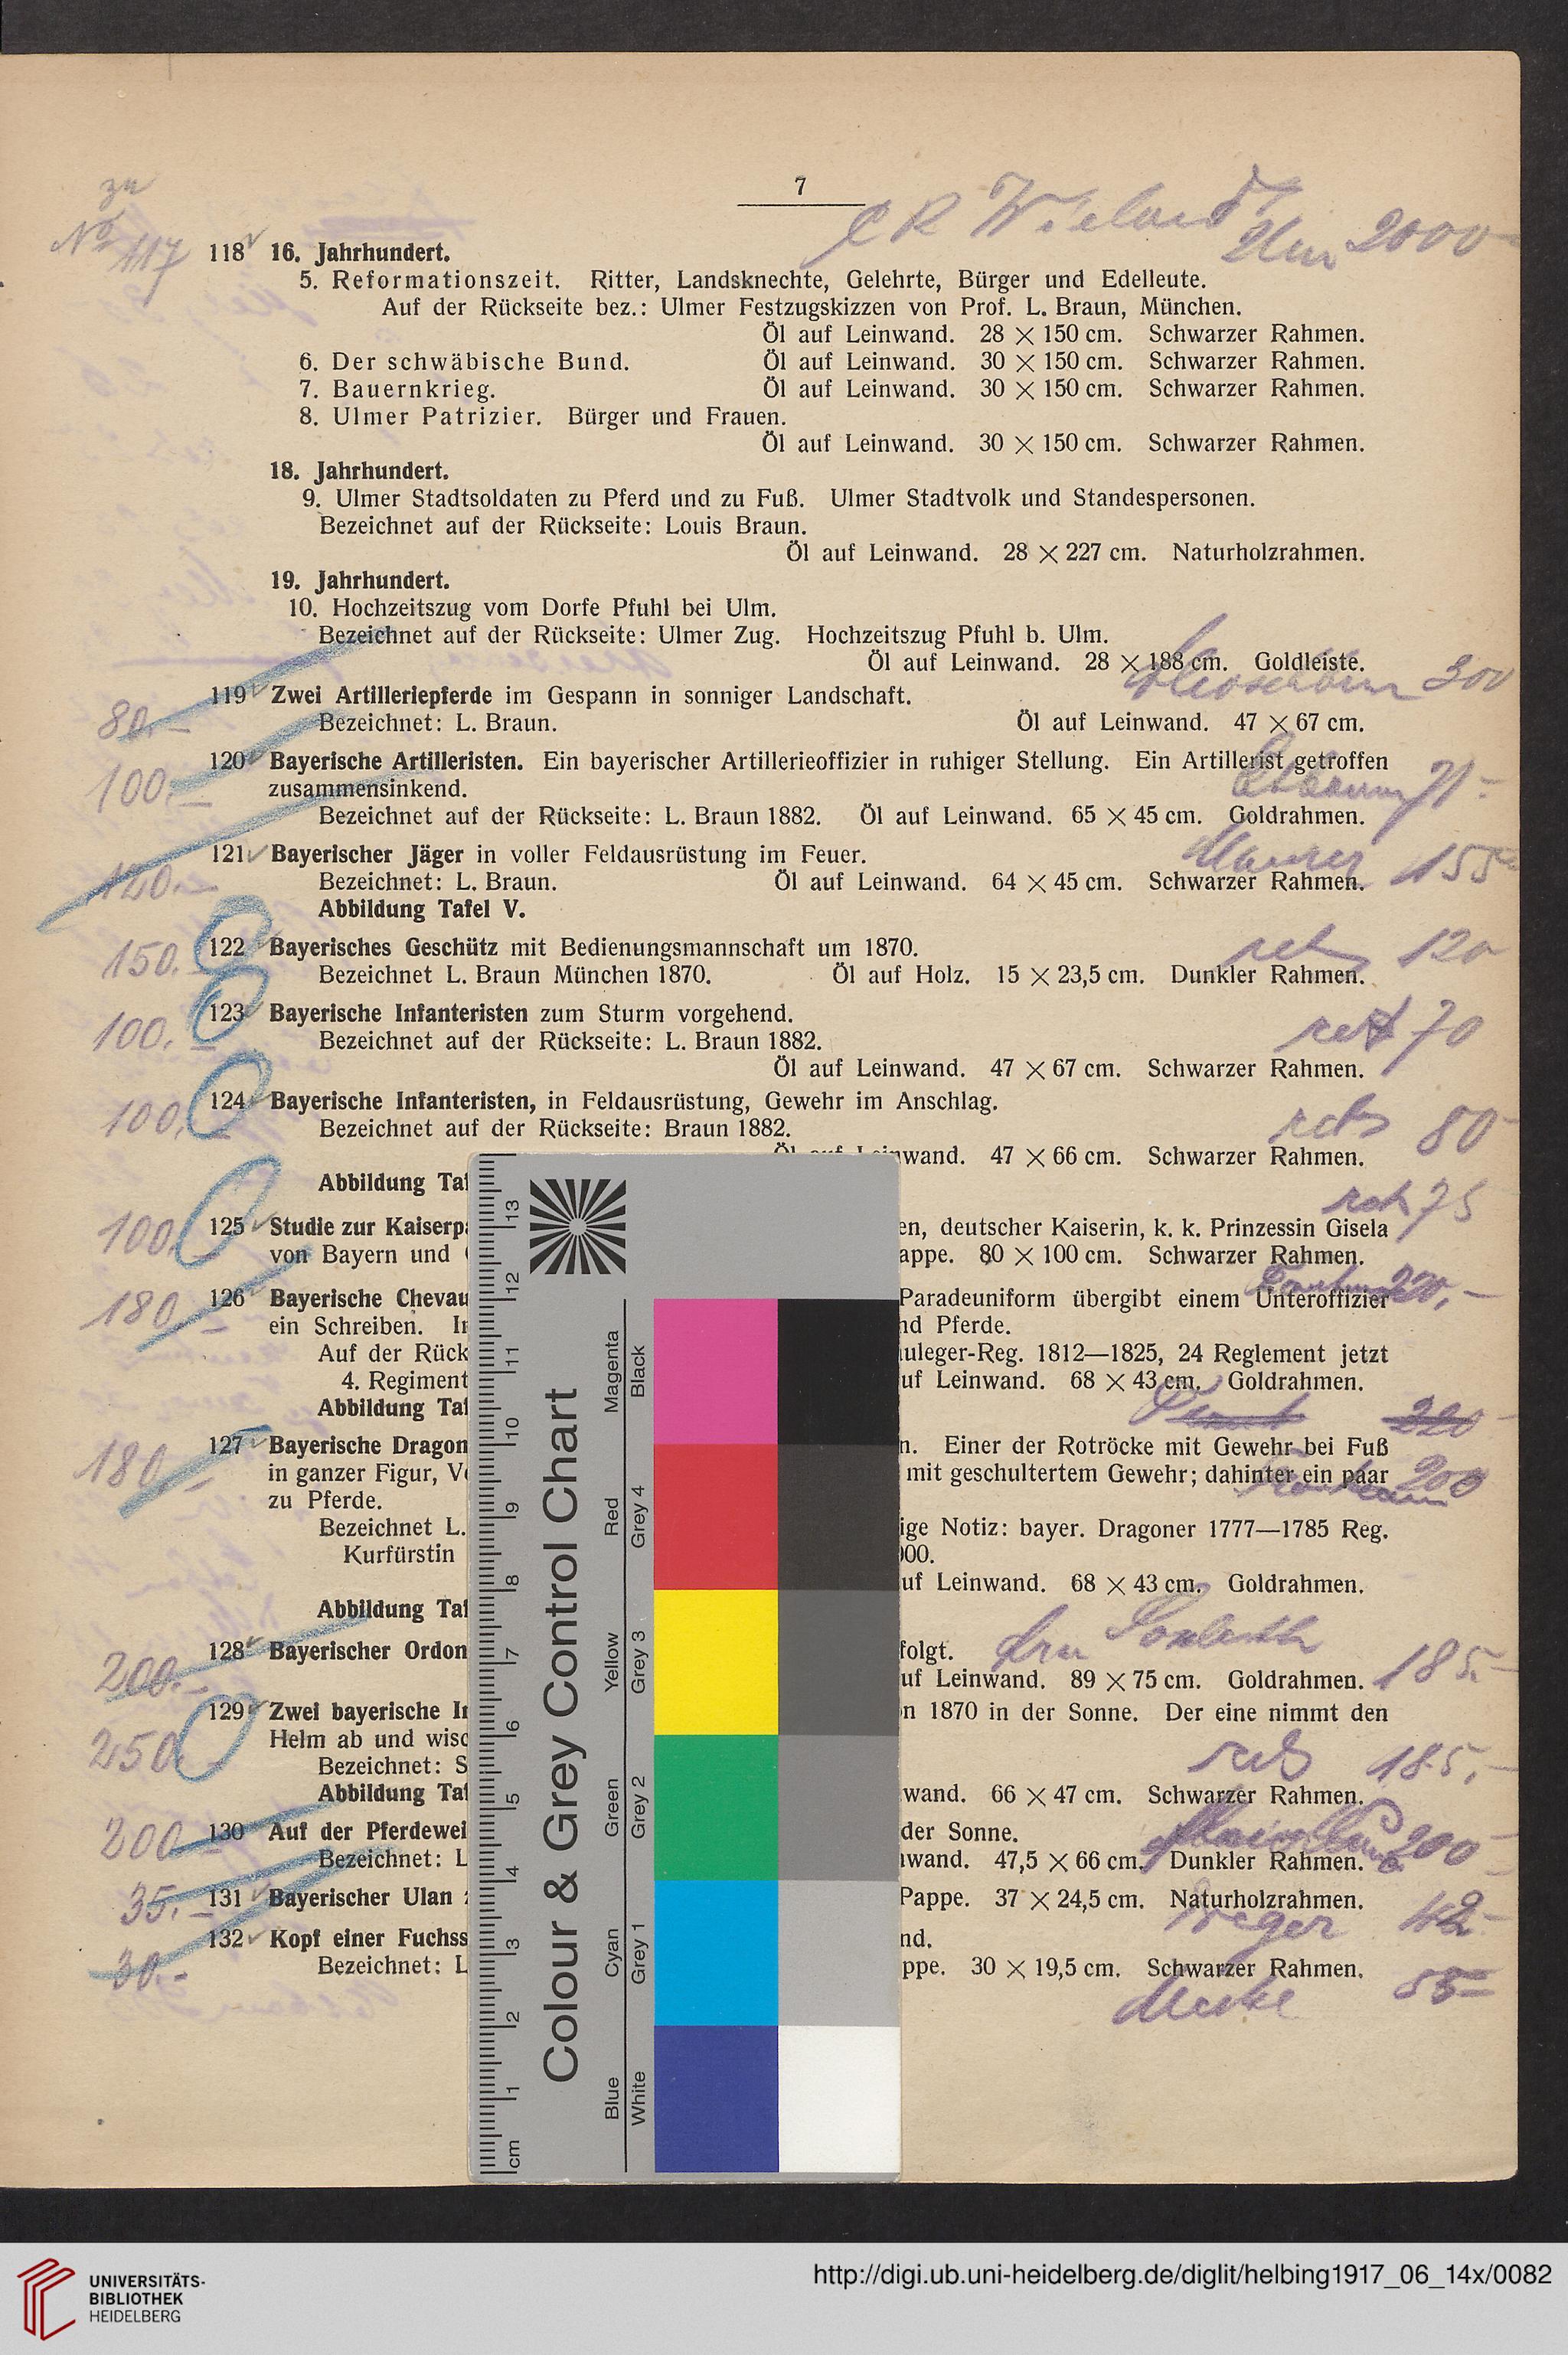 7
zu
No 117
C R Wieland
Ulm 2000
118 16. Jahrhundert.
5. Reformationszeit. Ritter, Landsknechte, Gelehrte, Bürger und Edelleute.
Auf der Rückseite bez.: Ulmer Festzugskizzen von Prof. L. Braun, München.
Öl auf Leinwand. 28 × 150 cm. Schwarzer Rahmen.
6. Der schwäbische Bund. Öl auf Leinwand. 30 × 150 cm. Schwarzer Rahmen.
7. Bauernkrieg. Öl auf Leinwand. 30 × 150 cm. Schwarzer Rahmen.
8. Ulmer Patrizier. Bürger und Frauen.
Öl auf Leinwand. 30 × 150 cm. Schwarzer Rahmen.
18. Jahrhundert.
9. Ulmer Stadtsoldaten zu Pferd und zu Fuß. Ulmer Stadtvolk und Standespersonen.
Bezeichnet auf der Rückseite: Louis Braun.
Öl auf Leinwand. 28 × 227 cm. Naturholzrahmen.
19. Jahrhundert.
10. Hochzeitszug vom Dorfe Pfuhl bei Ulm.
Bezeichnet auf der Rückseite: Ulmer Zug. Hochzeitszug Pfuhl b. Ulm.
Öl auf Leinwand. 28 × 188 cm. Goldleiste.
300
119 Zwei Artilleriepferde im Gespann in sonniger Landschaft.
80.-
Bezeichnet: L. Braun. Öl auf Leinwand. 47 × 67 cm.
120 Bayerische Artilleristen. Ein bayerischer Artillerieoffizier in ruhiger Stellung. Ein Artillerist getroffen
100.- zusammensinkend. 71-
Bezeichnet auf der Rückseite: L. Braun 1882. Öl auf Leinwand. 65 × 45 cm. Goldrahmen.
121 Bayerischer Jäger in voller Feldausrüstung im Feuer. Maurer 155
120.- Bezeichnet: L. Braun. Öl auf Leinwand. 64 × 45 cm. Schwarzer Rahmen.
Abbildung Tafel V.
122 Bayerisches Geschütz mit Bedienungsmannschaft um 1870. 120
150.- Bezeichnet L. Braun München 1870. Öl auf Holz. 15 × 23,5 cm. Dunkler Rahmen.
123 Bayerische Infanteristen zum Sturm vorgehend.
100.- Bezeichnet auf der Rückseite: L. Braun 1882. 70
Öl auf Leinwand. 47 × 67 cm. Schwarzer Rahmen.
124 Bayerische Infanteristen, in Feldausrüstung, Gewehr im Anschlag.
100.- Bezeichnet auf der Rückseite: Braun 1882. 80
wand. 47 × 66 cm. Schwarzer Rahmen.
Abbildung Taf
75
125 Studie zur Kaiserpa en, deutscher Kaiserin, k. k. Prinzessin Gisela
100.- von Bayern und appe. 80 × 100 cm. Schwarzer Rahmen.
220.-
126 Bayerische Chevau Paradeuniform übergibt einem Unteroffizier
180.- ein Schreiben. Ir nd Pferde.
Auf der Rück uleger-Reg. 1812—1825, 24 Reglement jetzt
4. Regiment uf Leinwand. 68 × 43 cm. Goldrahmen.
Abbildung Taf
220
127 Bayerische Dragon n. Einer der Rotröcke mit Gewehr bei Fuß
180.- in ganzer Figur, Vo mit geschultertem Gewehr; dahinter ein paar 200
zu Pferde.
Bezeichnet L. ige Notiz: bayer. Dragoner 1777—1785 Reg.
Kurfürstin 000.
uf Leinwand. 68 × 43 cm. Goldrahmen.
Abbildung Taf
128 Bayerischer Ordon folgt.
200.- uf Leinwand. 89 × 75 cm. Goldrahmen. 185.-
129 Zwei bayerische In n 1870 in der Sonne. Der eine nimmt den
250.- Helm ab und wisc
Bezeichnet: S 185.-
Abbildung Taf wand. 66 × 47 cm. Schwarzer Rahmen.
200 130 Auf der Pferdewei der Sonne. 200
Bezeichnet: L wand. 47,5 × 66 cm. Dunkler Rahmen.
35.- 131 Bayerischer Ulan z Pappe. 37 × 24,5 cm. Naturholzrahmen.
42
132 Kopf einer Fuchss nd.
30.- Bezeichnet: L ppe. 30 × 19,5 cm. Schwarzer Rahmen.
55-
Colour & Grey Control Chart
Magenta Red Yellow Green Cyan Blue
Black Grey 4 Grey 3 Grey 2 Grey 1 White
13 12 11 10 9 8 7 6 5 4 3 2 1 cm
UNIVERSITÄTS-
BIBLIOTHEK
HEIDELBERG
http://digi.ub.uni-heidelberg.de/diglit/helbing1917_06_14x/0082